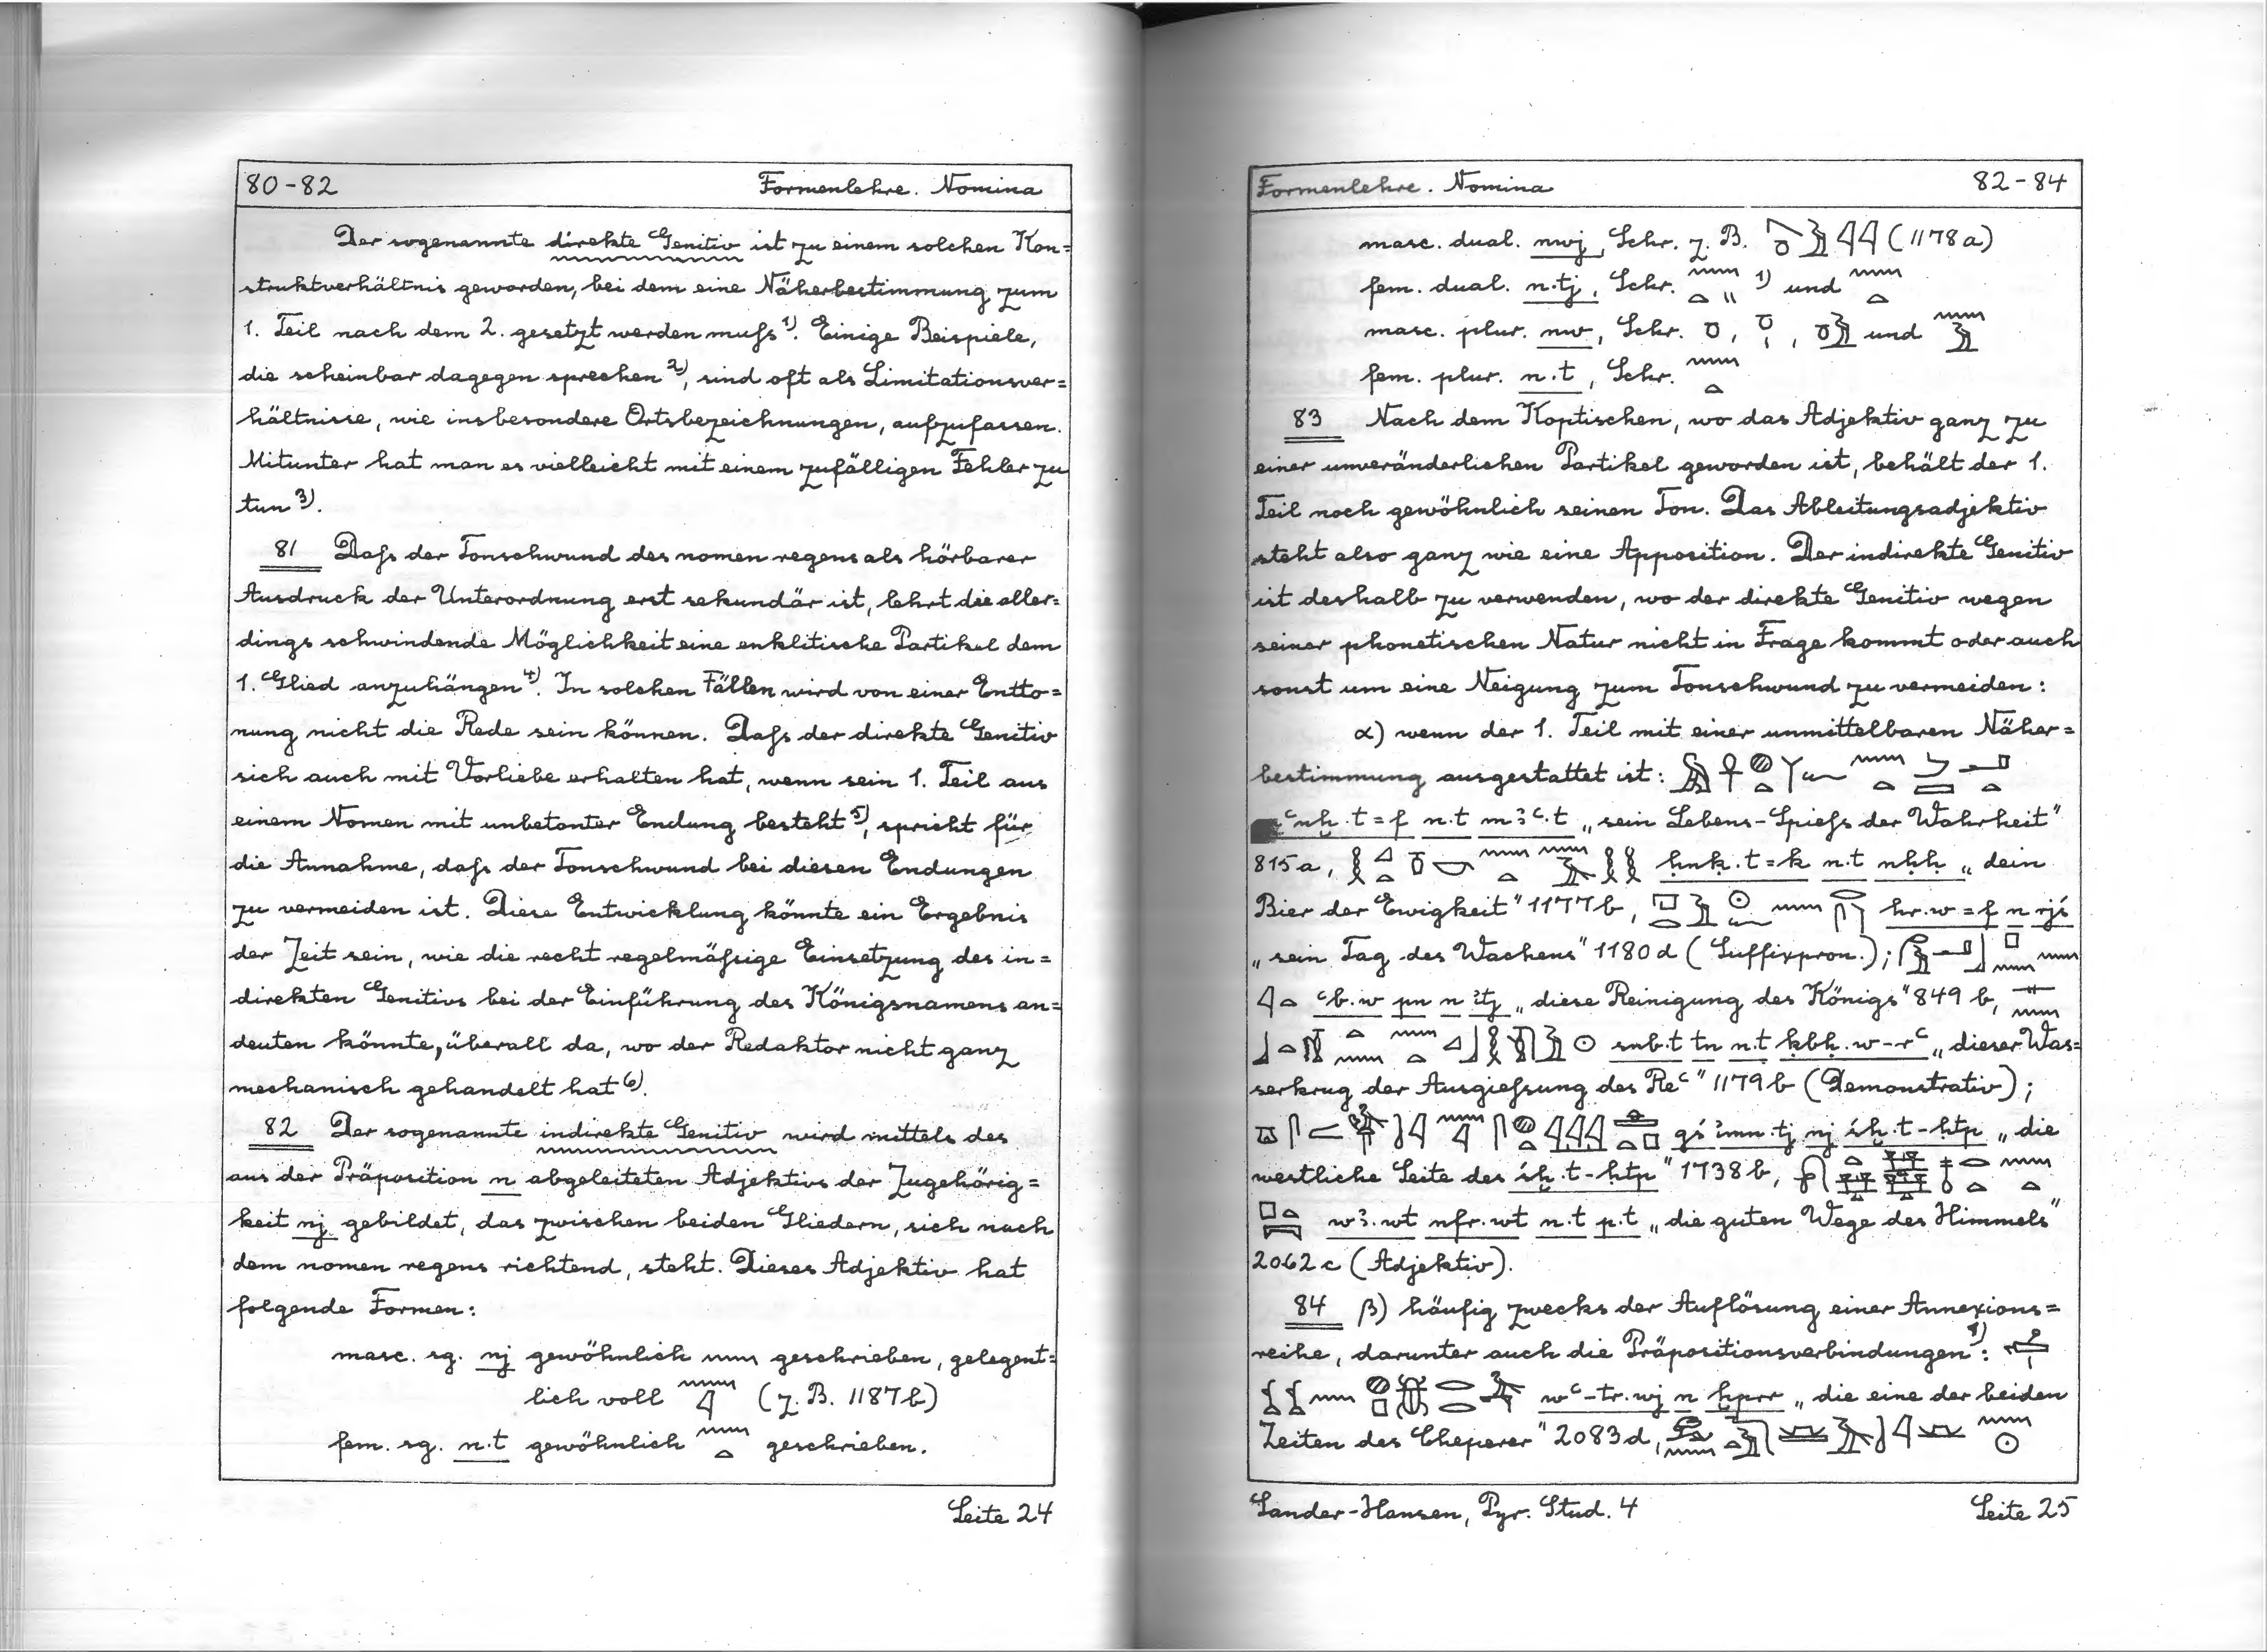 80-82 Formenlehre. Nomina
Der sogenannte direkte Genitiv ist zu einem solchen Kon=
struktverhältnis geworden, bei dem eine Näherbestimmung zum
1. Teil nach dem 2. gesetzt werden mußs¹⁾. Einige Beispiele,
die scheinbar dagegen sprechen²⁾, sind oft als Limitationsver=
hältnisse, wie insbesondere Ortsbezeichnungen, aufzufassen.
Mitunter hat man es vielleicht mit einem zufälligen Fehler zu
tun³⁾.
81 Daß der Tonschwund des nomen regens als hörbarer
Ausdruck der Unterordnung erst sekundär ist, lehrt die aller=
dings schwindende Möglichkeit eine enklitische Partikel dem
1. Glied anzuhängen⁴⁾. In solchen Fällen wird von einer Entto=
nung nicht die Rede sein können. Daß der direkte Genitiv
sich auch mit Vorliebe erhalten hat, wenn sein 1. Teil aus
einem Nomen mit unbetonter Endung besteht⁵⁾, spricht für
die Annahme, daß der Tonschwund bei diesen Endungen
zu vermeiden ist. Diese Entwicklung könnte ein Ergebnis
der Zeit sein, wie die recht regelmäßige Einsetzung des in=
direkten Genitivs bei der Einführung des Königsnamens an=
deuten könnte, überall da, wo der Redaktor nicht ganz
mechanisch gehandelt hat⁶⁾.
82 Der sogenannte indirekte Genitiv wird mittels des
aus der Präposition n abgeleiteten Adjektivs der Zugehörig=
keit nj gebildet, das zwischen beiden Gliedern, sich nach
dem nomen regens richtend, steht. Dieses Adjektiv hat
folgende Formen:
masc. sg. nj gewöhnlich 𓈖 geschrieben, gelegent=
lich voll 𓈖𓇋 (z. B. 1187b)
fem. sg. n.t gewöhnlich 𓈖𓏏 geschrieben.
Seite 24
Formenlehre. Nomina 82-84
masc. dual. nwj, Schr. z. B. 𓇋𓇋 (1178a)
fem. dual. n.tj, Schr. 𓈖𓏏𓏭 ¹⁾ und 𓈖𓏏
masc. plur. nw, Schr. 𓏌, 𓏌𓏤, 𓏌𓅱 und 𓈖𓅱
fem. plur. n.t, Schr. 𓈖𓏏
83 Nach dem Koptischen, wo das Adjektiv ganz zu
einer unveränderlichen Partikel geworden ist, behält der 1.
Teil noch gewöhnlich seinen Ton. Das Ableitungsadjektiv
steht also ganz wie eine Apposition. Der indirekte Genitiv
ist deshalb zu verwenden, wo der direkte Genitiv wegen
seiner phonetischen Natur nicht in Frage kommt oder auch
sonst um eine Neigung zum Tonschwund zu vermeiden:
α) wenn der 1. Teil mit einer unmittelbaren Näher=
bestimmung ausgestattet ist:
ꜥnḫ.t=f n.t mꜣꜥ.t „sein Lebens-Spieß der Wahrheit"
815a, ḥnḳ.t=k n.t nḥḥ „dein
Bier der Ewigkeit" 1177b, hr.w=f n rjś
„sein Tag des Wachens" 1180d (Suffixpron.);
ꜥb.w pn n ꜣtj „diese Reinigung des Königs" 849b,
snb.t tn n.t ḳbḥ.w-rꜥ „dieser Was=
serkrug der Ausgießung des Reꜥ" 1179b (Demonstrativ);
gś ꜣmn.tj nj śḫ.t-ḥtp „die
westliche Seite des śḫ.t-ḥtp" 1738b,
wꜣ.wt nfr.wt n.t p.t „die guten Wege des Himmels"
2062c (Adjektiv).
84 β) häufig zwecks der Auflösung einer Annexions=
reihe, darunter auch die Präpositionsverbindungen¹⁾:
wꜥ-tr.wj n ḫprr „die eine der beiden
Zeiten des Cheperer" 2083d,
Sander-Hansen, Pyr. Stud. 4 Seite 25